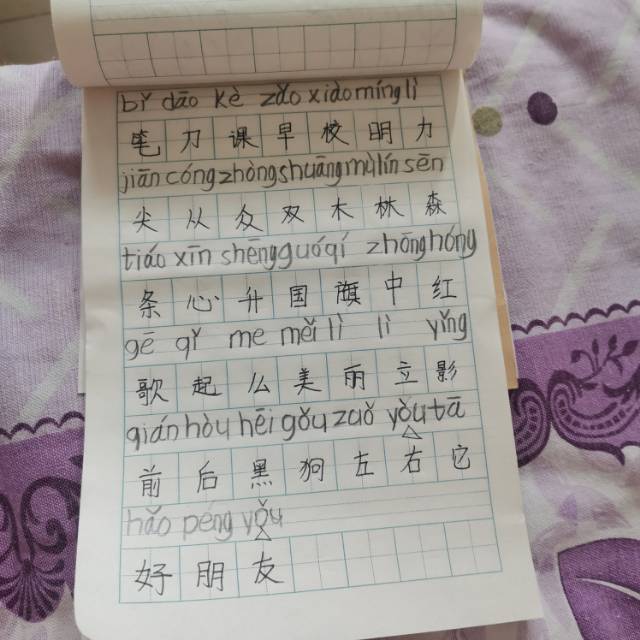 bǐ dāo kè zǎo xiào míng lì
笔 刀 课 早 校 明 力
jiān cóng zhòng shuāng mù lín sēn
尖 从 众 双 木 林 森
tiáo xīn shēng guó qí zhōng hóng
条 心 升 国 旗 中 红
gē qǐ me měi lì lì yǐng
歌 起 么 美 丽 立 影
qián hòu hēi gǒu zuǒ yǒu tā
前 后 黑 狗 左 右 它
hǎo péng yǒu
好 朋 友